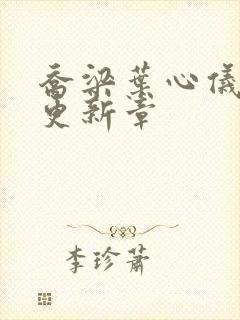 乔梁叶心仪
更新章
李珍萧